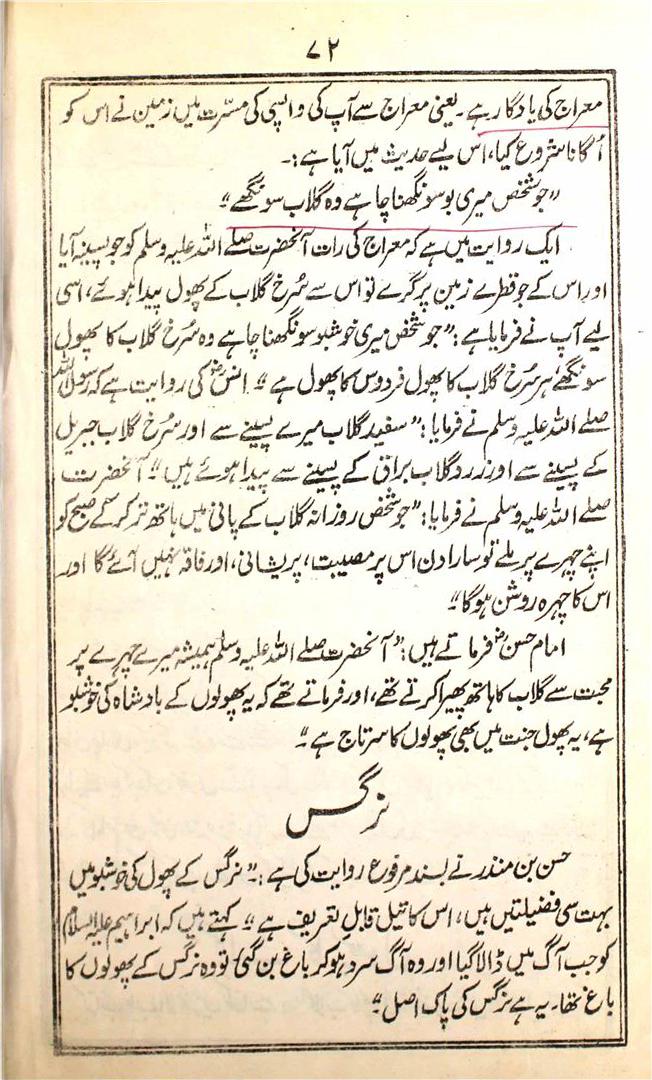 ۷۲
معراج کی یادگار ہے۔ یعنی معراج سے آپ کی واپسی کی مسرّت میں زمین نے اس کو
اُگانا شروع کیا، اس لیے حدیث میں آیا ہے:۔
”جو شخص میری بو سونگھنا چاہے وہ گلاب سونگھے“
ایک روایت میں ہے کہ معراج کی رات آنحضرت صلے اللہ علیہ وسلم کو جو پسینہ آیا
اور اس کے جو قطرے زمین پر گرے تو اس سے سُرخ گلاب کے پھول پیدا ہوئے، اسی
لیے آپ نے فرمایا ہے: ”جو شخص میری خوشبو سونگھنا چاہے وہ سُرخ گلاب کا پھول
سونگھے، ہر سُرخ گلاب کا پھول فردوس کا پھول ہے“۔ انسؓ کی روایت ہے کہ رسول اللہ
صلے اللہ علیہ وسلم نے فرمایا: ”سفید گلاب میرے پسینے سے اور سُرخ گلاب جبریل
کے پسینے سے اور زرد گلاب براق کے پسینے سے پیدا ہوئے ہیں“۔ آنحضرت
صلے اللہ علیہ وسلم نے فرمایا: ”جو شخص روزانہ گلاب کے پانی میں ہاتھ تر کر کے صبح کو
اپنے چہرے پر ملے تو سارا دن اس پر مصیبت، پریشانی، اور فاقہ نہیں آئے گا اور
اس کا چہرہ روشن ہوگا“
امام حسنؓ فرماتے ہیں: ”آنحضرت صلے اللہ علیہ وسلم ہمیشہ میرے چہرے پر
محبت سے گلاب کا ہاتھ پھیرا کرتے تھے، اور فرماتے تھے کہ یہ پھولوں کے بادشاہ کی خوشبو
ہے، یہ پھول جنت میں بھی پھولوں کا سرتاج ہے“۔
نرگس
حسن بن منذر نے بسند مرفوع روایت کی ہے: ”نرگس کے پھول کی خوشبو میں
بہت سی فضیلتیں ہیں، اس کا تیل قابلِ تعریف ہے“۔ کہتے ہیں کہ ابراہیم علیہ السلام
کو جب آگ میں ڈالا گیا اور وہ آگ سرد ہو کر باغ بن گئی تو وہ نرگس کے پھولوں کا
باغ تھا۔ یہ ہے نرگس کی پاک اصل“